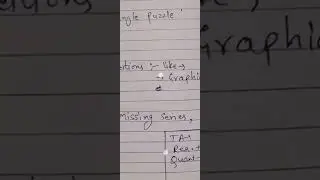 ngle puzzle"
Graphic
ections :- like →
→ Graphic
Missing series,
TA→
Rea. +
Quant